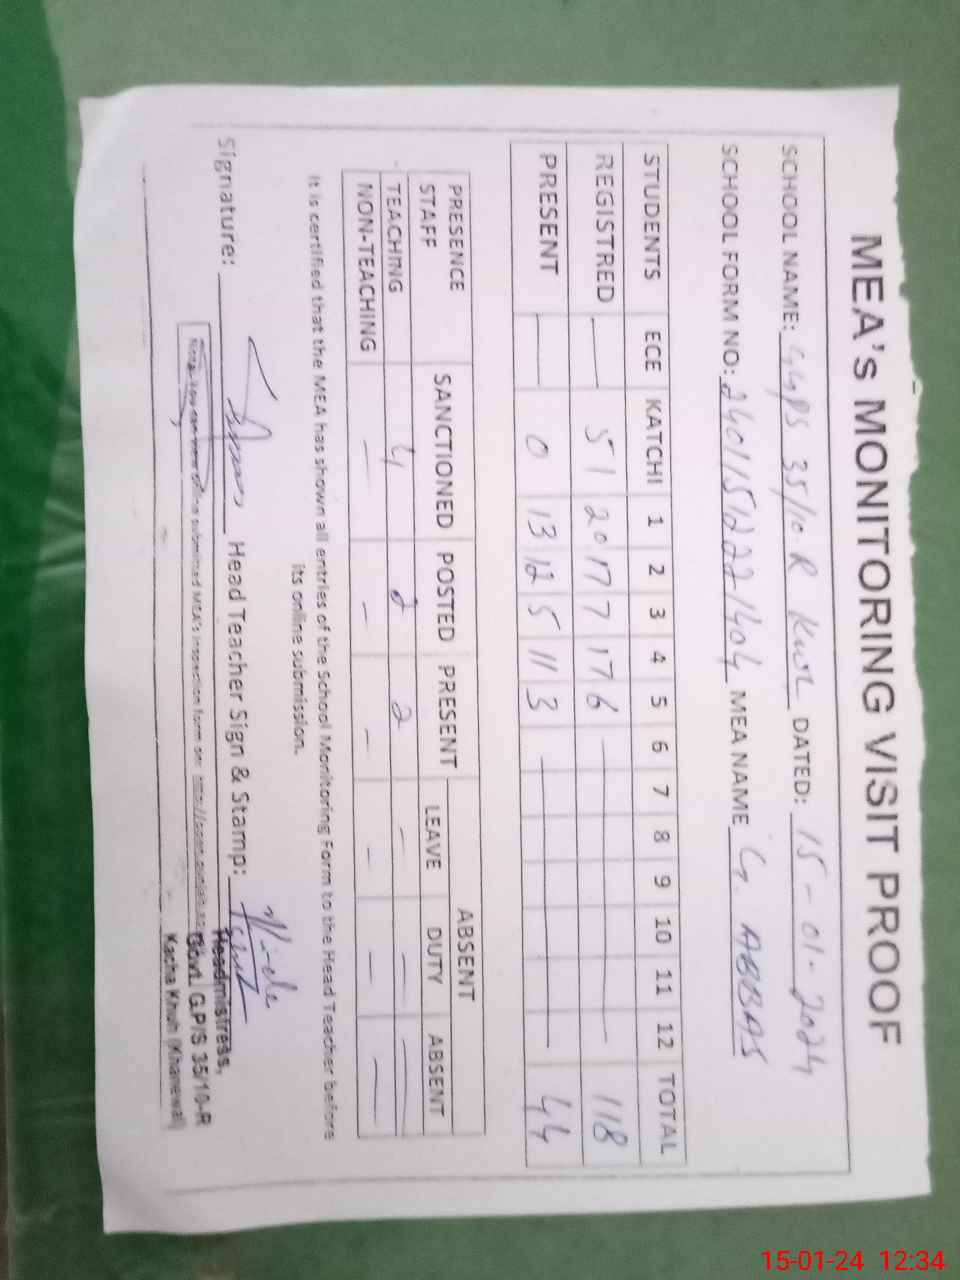 MEA's MONITORING VISIT PROOF
SCHOOL NAME: GGPS 35/10-R KWL DATED: 15-01-2024
SCHOOL FORM NO: 2401151222-1404 MEA NAME G. ABBAS
STUDENTS ECE KATCHI 1 2 3 4 5 6 7 8 9 10 11 12 TOTAL
REGISTRED — 51 20 17 7 17 6 — 118
PRESENT — 0 13 12 5 11 3 — 44
PRESENCE ABSENT
STAFF SANCTIONED POSTED PRESENT LEAVE DUTY ABSENT
TEACHING 4 2 2 — — —
NON-TEACHING — — — — — —
It is certified that the MEA has shown all entries of the School Monitoring Form to the Head Teacher before
its online submission.
Signature: Head Teacher Sign & Stamp:
Headmistress,
Govt. G.P/S 35/10-R
Kacha Khuh (Khanewal)
Note: You can view online submitted MEA's inspection form on:
15-01-24 12:34